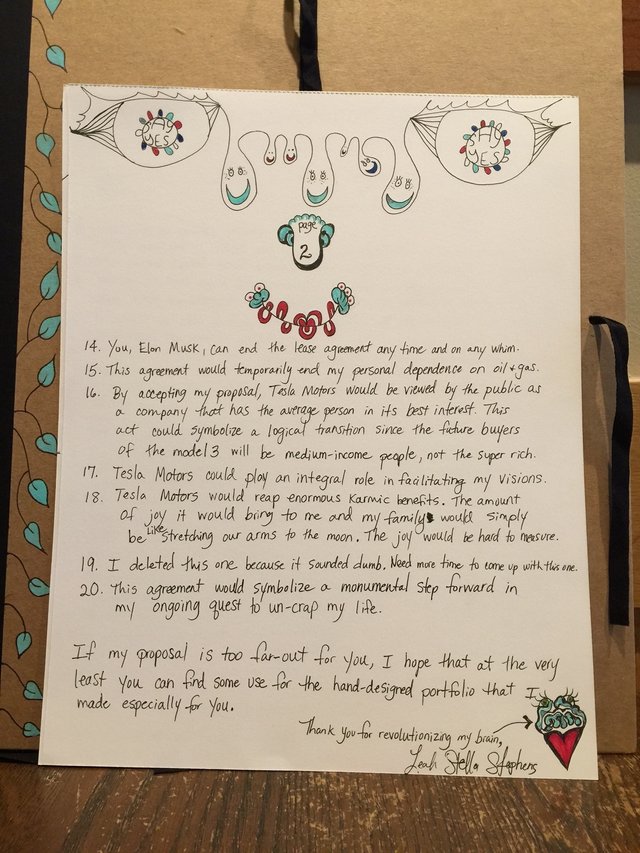 SAY YES
SAY YES
page
2
14. You, Elon Musk, can end the lease agreement any time and on any whim.
15. This agreement would temporarily end my personal dependence on oil & gas.
16. By accepting my proposal, Tesla Motors would be viewed by the public as
a company that has the average person in its best interest. This
act could symbolize a logical transition since the future buyers
of the model 3 will be medium-income people, not the super rich.
17. Tesla Motors could play an integral role in facilitating my visions.
18. Tesla Motors would reap enormous karmic benefits. The amount
of joy it would bring to me and my family would simply
be like stretching our arms to the moon. The joy would be hard to measure.
19. I deleted this one because it sounded dumb. Need more time to come up with this one.
20. This agreement would symbolize a monumental step forward in
my ongoing quest to un-crap my life.
If my proposal is too far-out for you, I hope that at the very
least you can find some use for the hand-designed portfolio that I
made especially for you.
Thank you for revolutionizing my brain,
Leah Stella Stephens